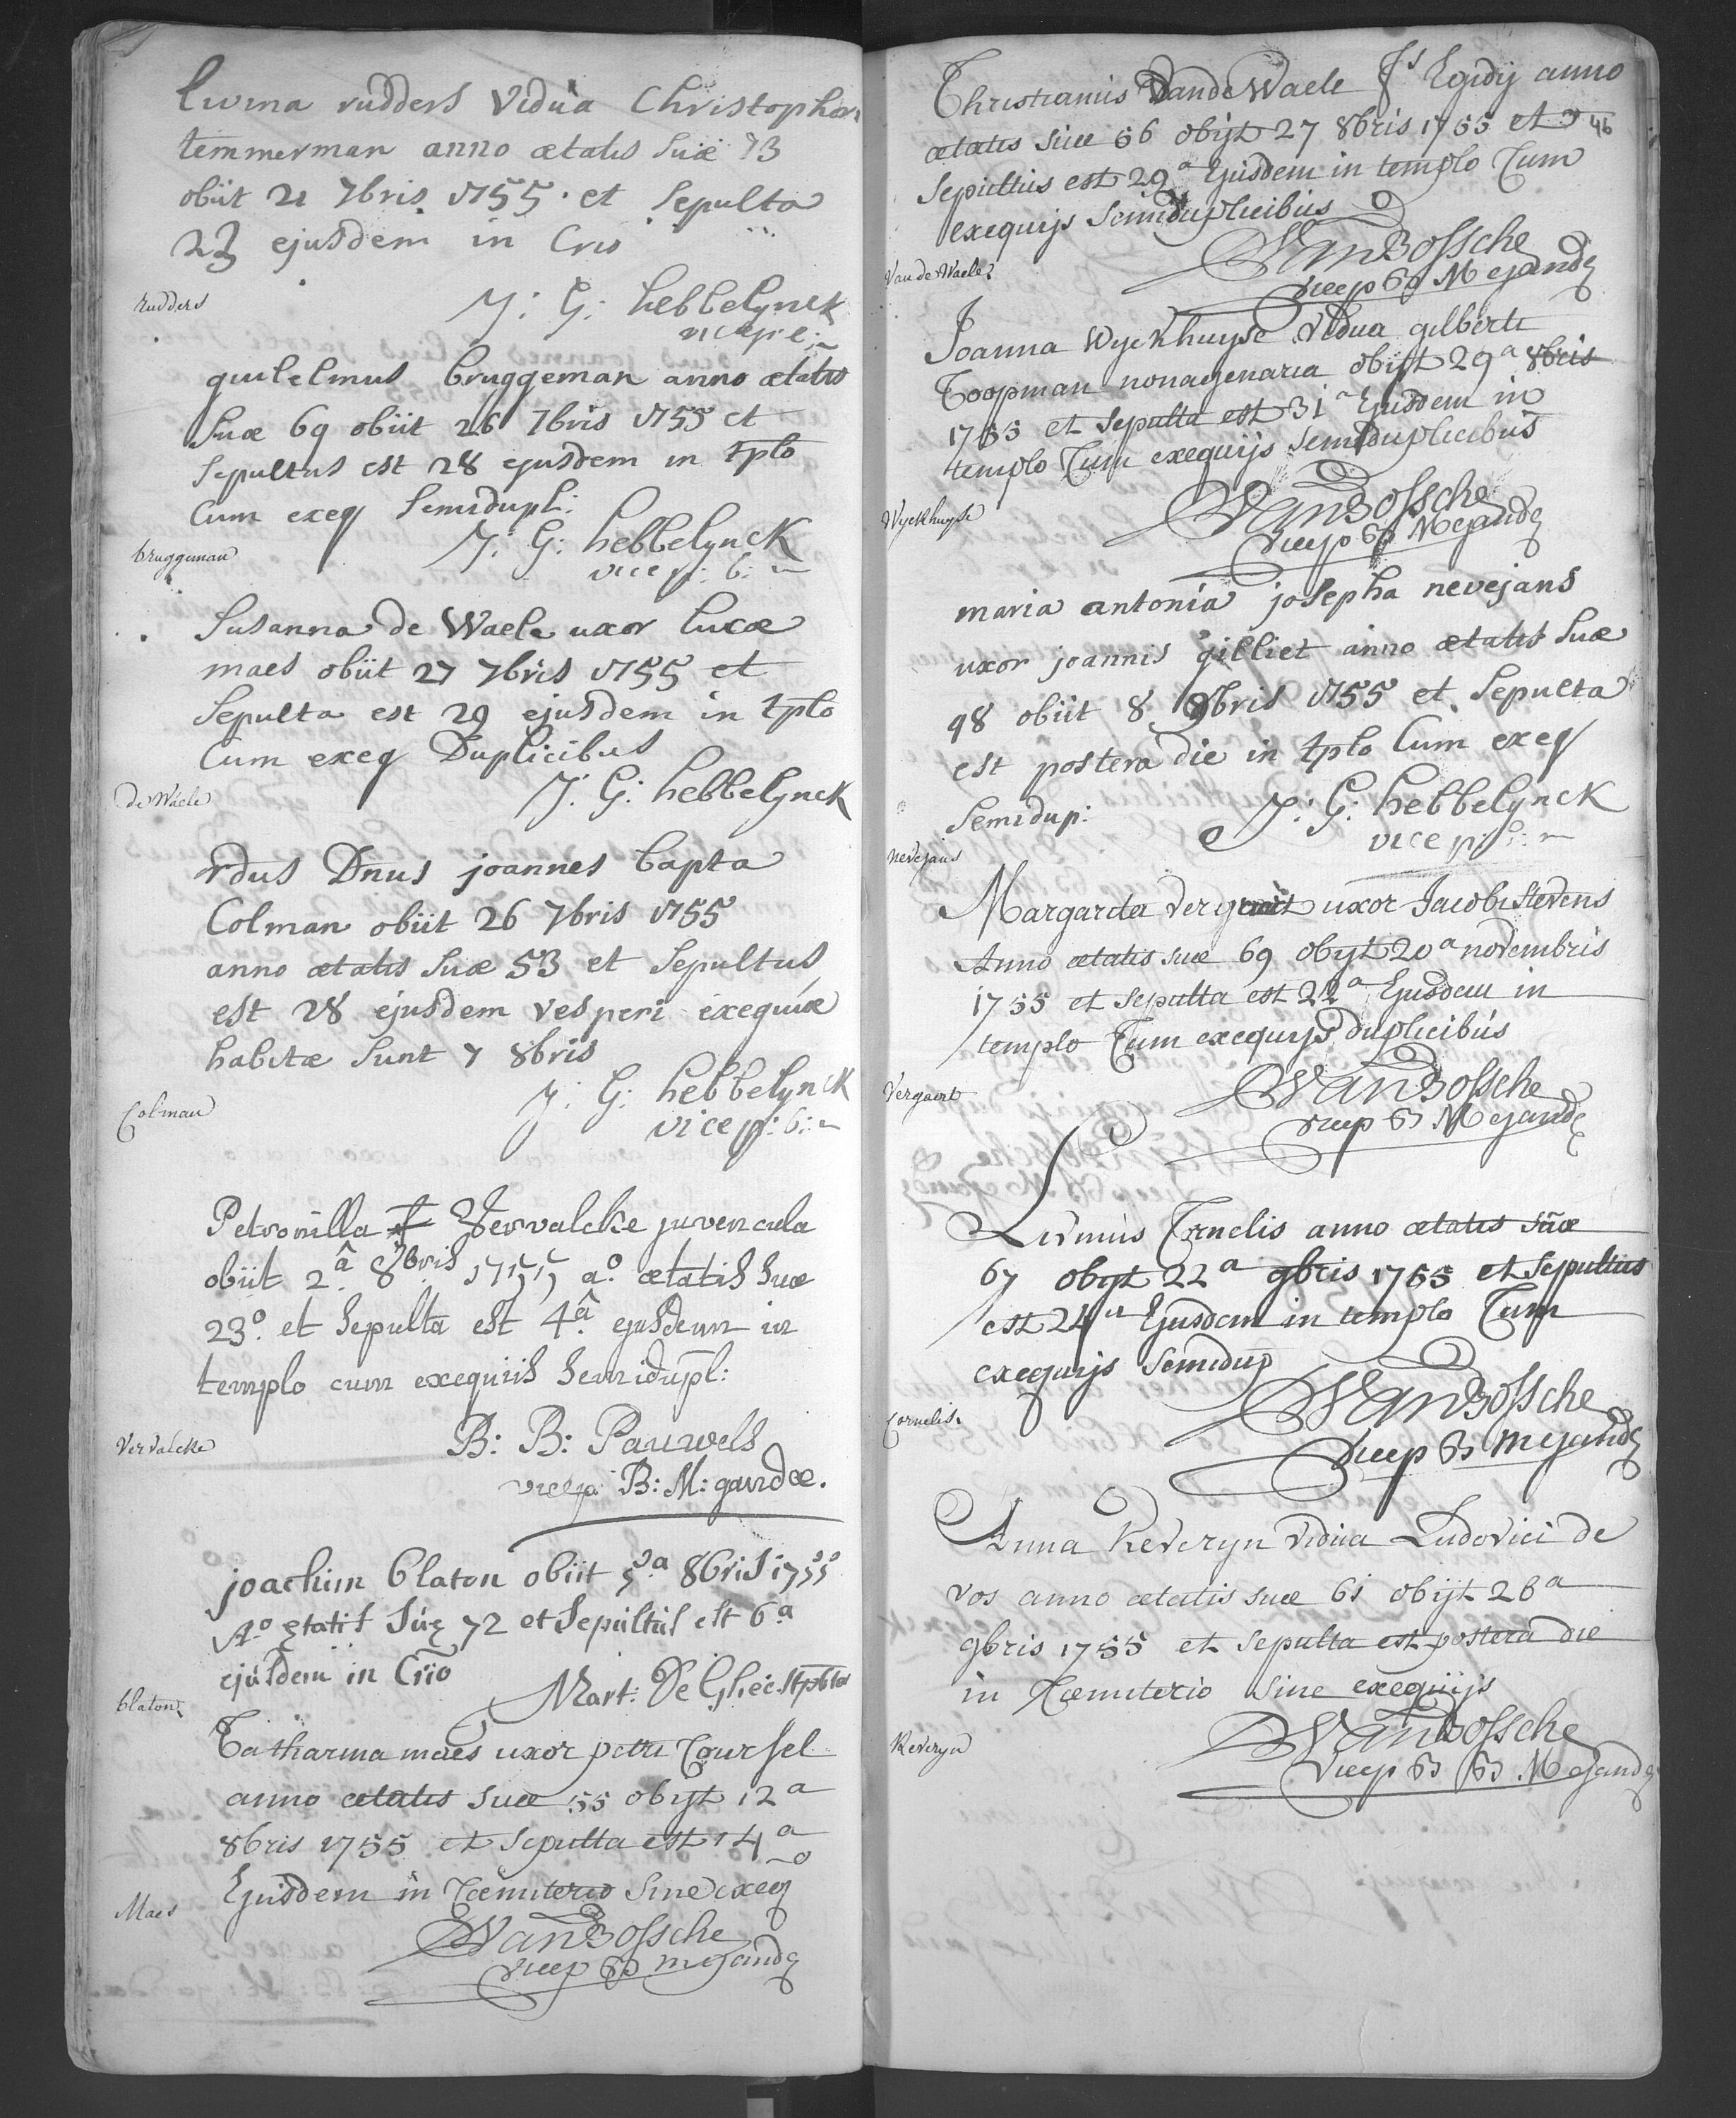 Livina rudders Vidua Christophori
temmerman anno ætatis Suæ 73
obiit 21 7bris 1755 · et Sepulta
23 ejusdem in Crio
rudders
J: G: hebbelynck
vicep:
guilelmus bruggeman anno ætatis
Suæ 69 obiit 26 7bris 1755 et
Sepultus est 28 ejusdem in tplo
Cum exeq Semidupl:
bruggeman
J: G: hebbelynck
vicep: b:
Susanna de Waele uxor lucæ
maes obiit 27 7bris 1755 et
Sepulta est 29 ejusdem in tplo
Cum exeq Duplicibus
De Waele
J: G: hebbelynck
rdus Dnus joannes bapta
Colman obiit 26 7bris 1755
anno ætatis Suæ 53 et Sepultus
est 28 ejusdem vesperi exequiæ
habitæ Sunt 7 8bris
Colman
J: G: hebbelynck
vicep: b:
Petronilla Vervalcke juvencula
obiit 2.â 8bris 1755 a.o ætatis Suæ
23.o et Sepulta est 4.â ejusdem in
templo cum exequiis Semidupl:
Vervalcke
B: B: Pauwels
vicep: B: M: gandæ.
joachim blaton obiit 5.a 8bris 1755
A.o ętatis Súę 72 et Sepúltús est 6.a
ejúsdem in Crïo
blaton
Mart: De Ghée Stpbtor
Catharina maes uxor petri Coursel
anno ætatis suæ 55 obijt 12a
8bris 1755 et sepulta est 14a
Ejusdem in Cœmiterio Sine exeq
Maes
VanBossche
vicep B Megandę
Christianus VandeWaele Fs Egidij anno
46
ætatis suæ 66 obijt 27 8bris 1755 et
sepultus est 29a Ejusdem in templo Cum
exequijs Semiduplicibus
Van de Waele
VanBossche
vicep B Megandę
Joanna Wyckhuyse Vidua gilberti
Coopman nonagenaria obijt 29a 8bris
1755 et sepulta est 31a Ejusdem in
templo Cum exequijs Semiduplicibus
Wyckhuyse
VanBossche
vicep B Megandę
maria antonia josepha nevejans
uxor joannis gilliet anno ætatis Suæ
48 obiit 8 9bris 1755 et Sepulta
est postera die in tplo Cum exeq
Semidup:
nevejans
J: G: hebbelynck
vicep:
Margarita Vergaert uxor Jacobi Stevens
Anno ætatis suæ 69 obijt 20a novembris
1755 et sepulta est 22a Ejusdem in
templo Cum exequijs duplicibus
Vergaert
VanBossche
vicep B Megandę
Livinus Cornelis anno ætatis suæ
67 obijt 22a 9bris 1755 et sepultus
est 24a Ejusdem in templo Cum
exequijs Semidup
Cornelis
VanBossche
vicep B Megandę
Anna Keveryn Vidua Ludovici de
vos anno ætatis suæ 61 obijt 26a
9bris 1755 et sepulta est postera die
in Cœmiterio Sine exequijs
Keveryn
VanBossche
vicep B B Megandę